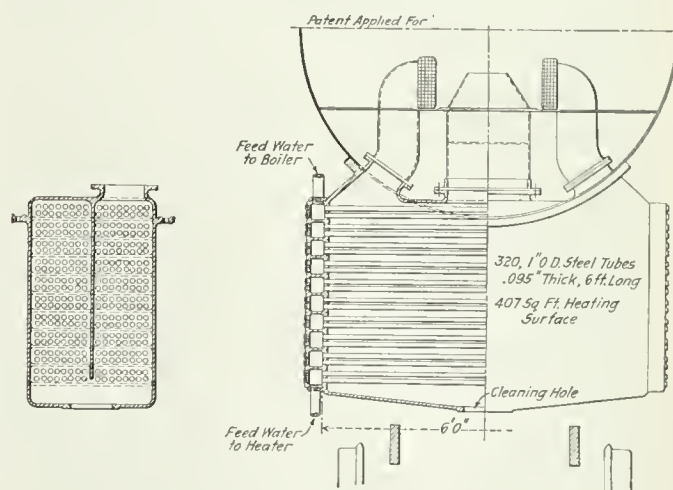 Patent Applied For
Feed Water
to Boiler
320, 1"O.D. Steel Tubes
.095" Thick, 6ft. Long
407 Sq. Ft. Heating
Surface
Cleaning Hole
6'0"
Feed Water
to Heater